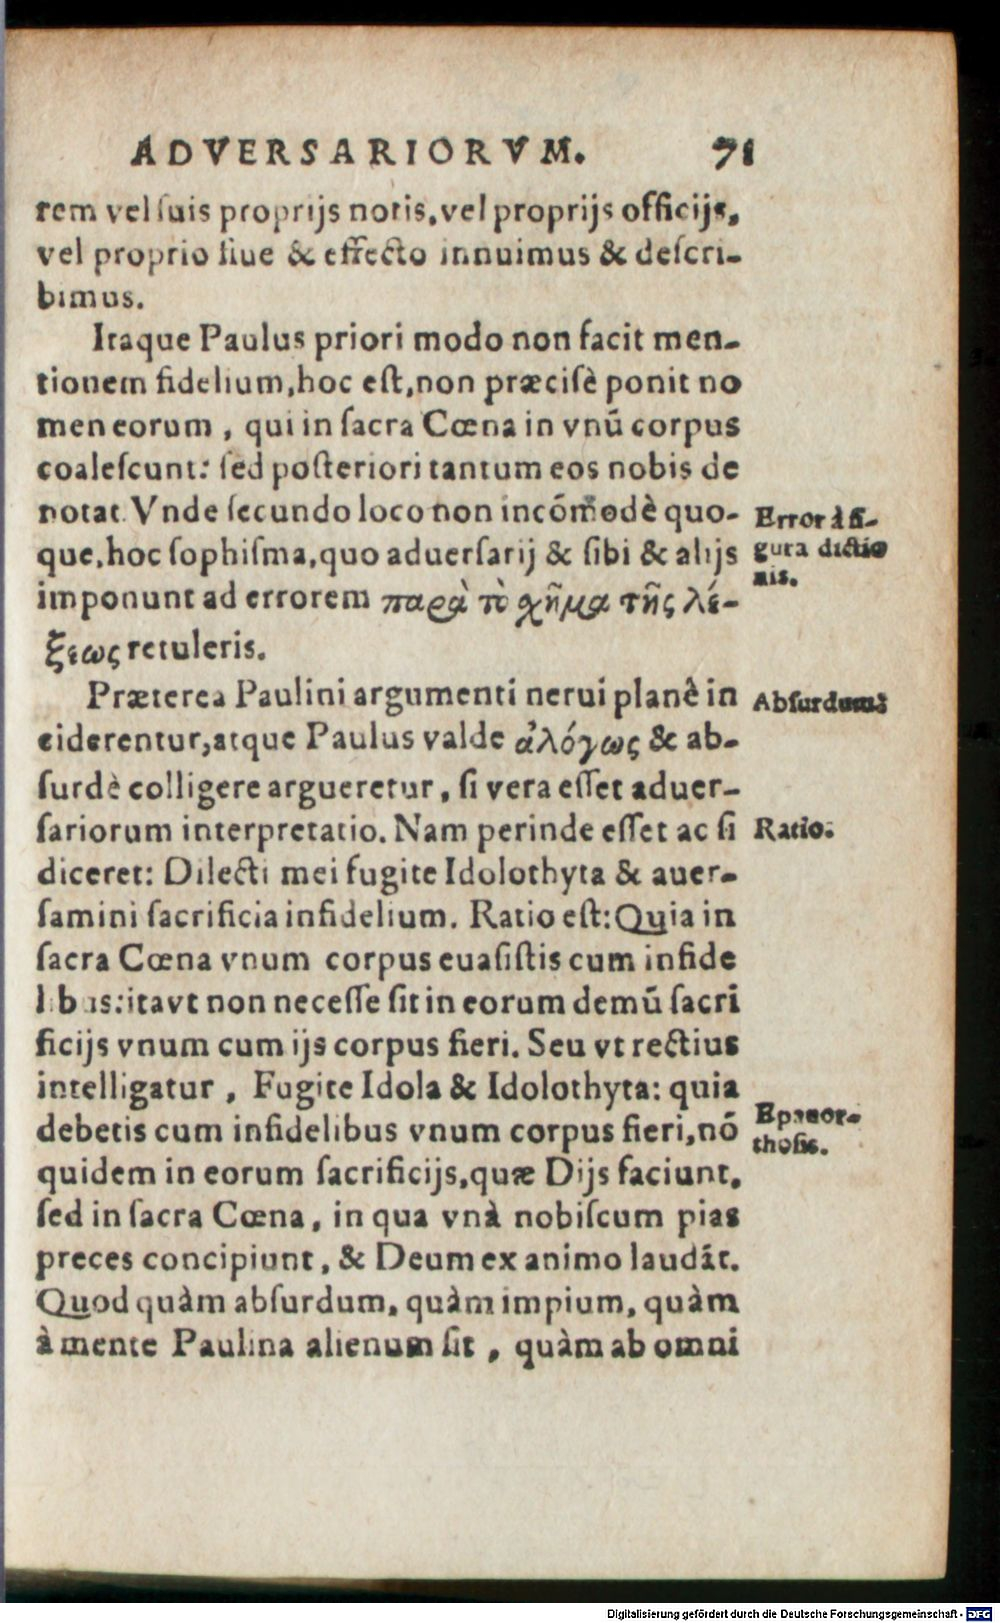 ADVERSARIORVM. 71
rem vel ſuis proprijs notis, vel proprijs officijs,
vel proprio ſiue & effecto innuimus & deſcri-
bimus.
Itaque Paulus priori modo non facit men-
tionem fidelium, hoc eſt, non præcisè ponit no
men eorum, qui in ſacra Cœna in vnū corpus
coaleſcunt: ſed poſteriori tantum eos nobis de
notat. Vnde ſecundo loco non incōmodè quo-
que, hoc ſophiſma, quo aduerſarij & ſibi & alijs
imponunt ad errorem παρὰ τὸ χῆμα τῆς λέ-
ξεως retuleris.
Error à fi-
gura dictio
nis.
Præterea Paulini argumenti nerui planè in
ciderentur, atque Paulus valde ἀλόγως & ab-
ſurdè colligere argueretur, ſi vera eſſet aduer-
ſariorum interpretatio. Nam perinde eſſet ac ſi
diceret: Dilecti mei fugite Idolothyta & auer-
ſamini ſacrificia infidelium. Ratio eſt: Quia in
ſacra Cœna vnum corpus euaſiſtis cum infide
libus: itavt non neceſſe ſit in eorum demū ſacri
ficijs vnum cum ijs corpus fieri. Seu vt rectius
intelligatur, Fugite Idola & Idolothyta: quia
debetis cum infidelibus vnum corpus fieri, nō
quidem in eorum ſacrificijs, quæ Dijs faciunt,
ſed in ſacra Cœna, in qua vnà nobiſcum pias
preces concipiunt, & Deum ex animo laudāt.
Quod quàm abſurdum, quàm impium, quàm
à mente Paulina alienum ſit, quàm ab omni
Ratio.
Epanor-
thoſis.
Digitalisierung gefördert durch die Deutsche Forschungsgemeinschaft - DFG